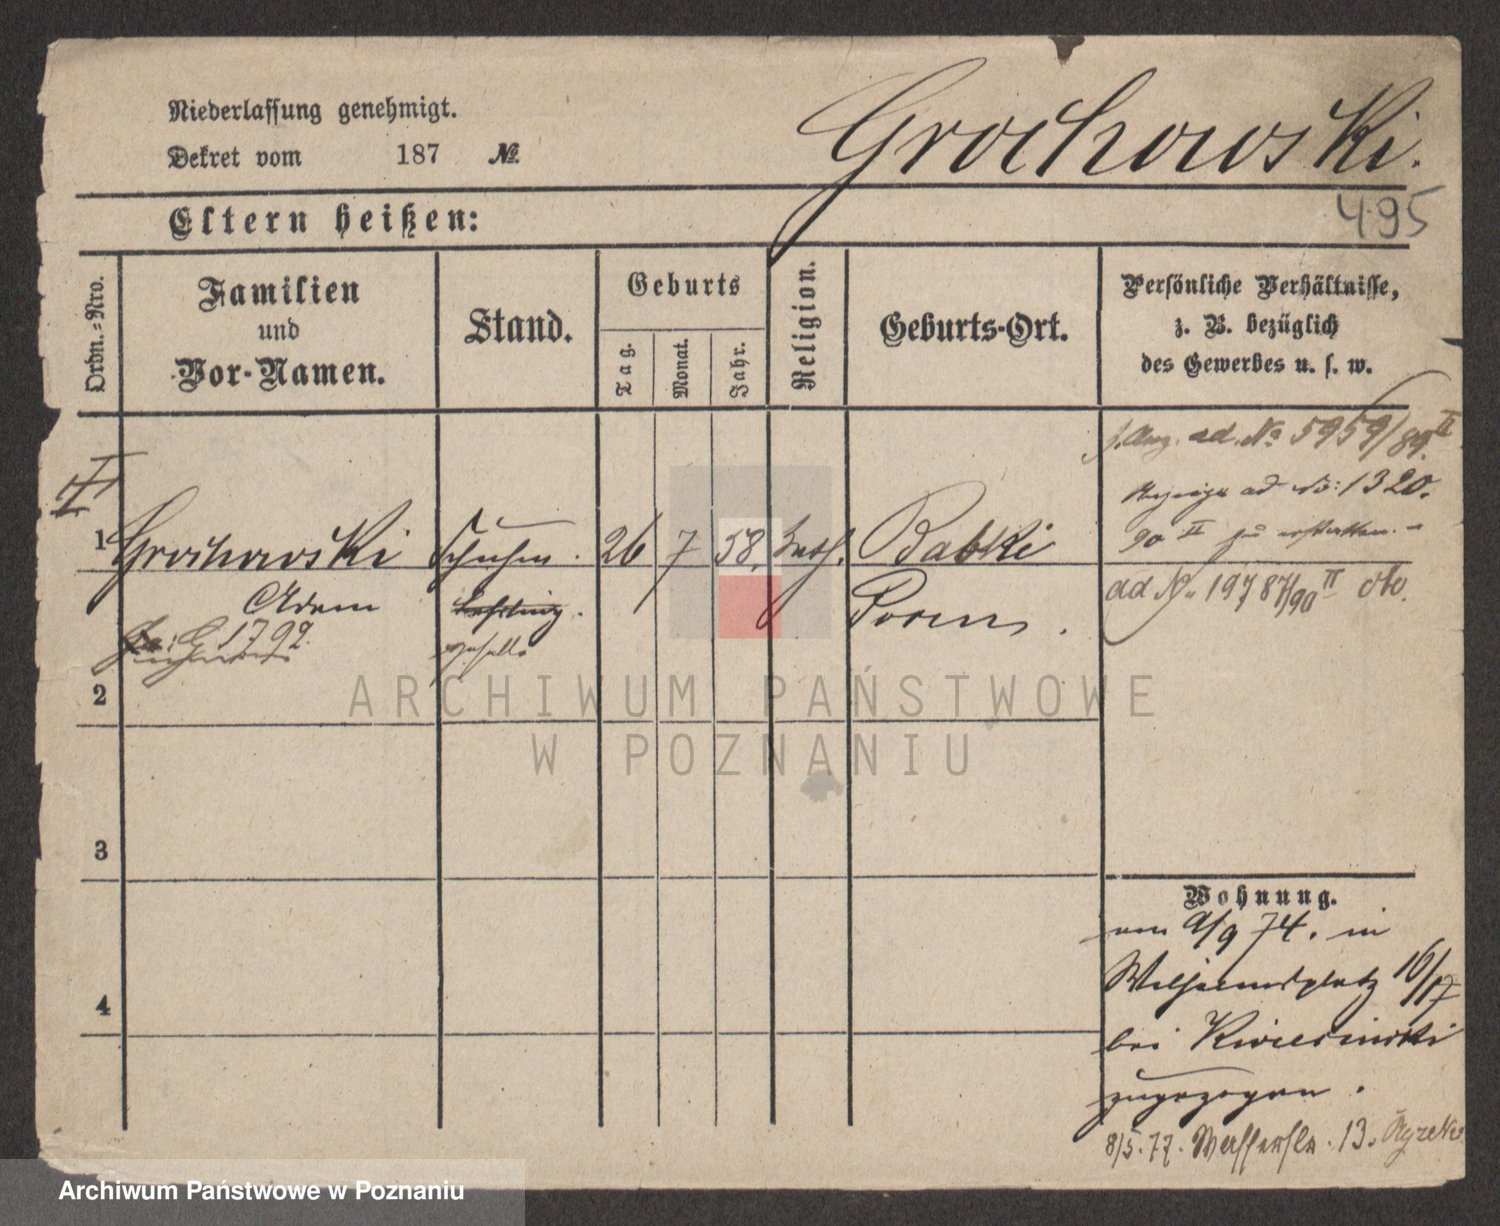 Niederlassung genehmigt.
Dekret vom 187 №
Grochowski.
495
Eltern heißen:
Ordn.-Nro.
Familien
und
Vor-Namen.
Stand.
Geburts
Tag.
Monat.
Jahr.
Religion.
Geburts-Ort.
Persönliche Verhältnisse,
z. B. bezüglich
des Gewerbes u. s. w.
ad. No 5959/89. II
Anzeige ad No: 1320.
90 II zu erstatten. -
I
1 Grochowski Schuhm. 26 7 58. kath. Babki
Adam Lehrling. Posen.
1792. Geselle
ad No. 19787/90 II
2
3
4
Wohnung.
am 9/9 74. in
Wilhelmsplatz 16/17
bei Kwiecinski
zugezogen.
8/5.77. Wasserstr. 13.
ARCHIWUM PAŃSTWOWE
W POZNANIU
Archiwum Państwowe w Poznaniu